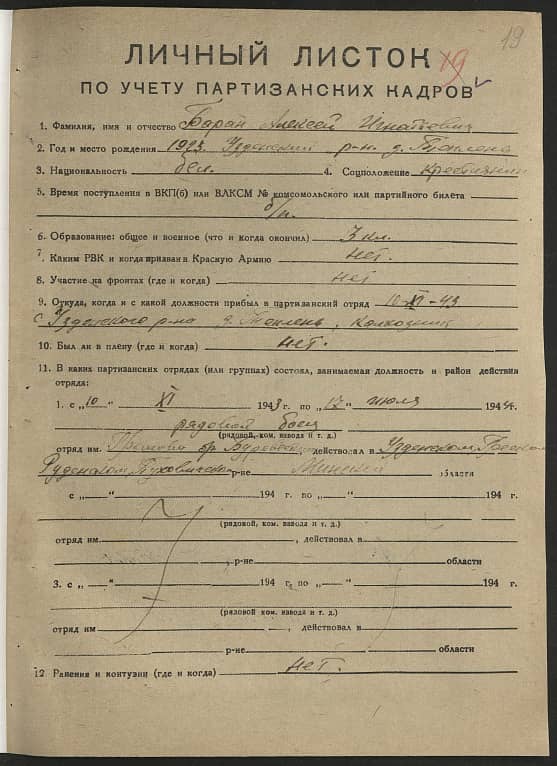 19
19
ЛИЧНЫЙ ЛИСТОК
ПО УЧЕТУ ПАРТИЗАНСКИХ КАДРОВ
1. Фамилия, имя и отчество Баран Алексей Игнатович
2. Год и место рождения 1923. Узденский р-н. д.
3. Национальность бел. 4. Соцположение крестьянин
5. Время поступления в ВКП(б) или ВЛКСМ № комсомольского или партийного билета
б/п.
6. Образование: общее и военное (что и когда окончил) 3 кл.
7. Каким РВК и когда призван в Красную Армию нет.
8. Участие на фронтах (где и когда) нет
9. Откуда, когда и с какой должности прибыл в партизанский отряд 10-XI-43
с Узденского р-на д. колхозник
10. Был ли в плену (где и когда) нет.
11. В каких партизанских отрядах (или группах) состоял, занимаемая должность и район действия
отряда:
1. с „10" XI 1943 г. по „17" июля 1944 г.
рядовой боец
(рядовой, ком. взвода и т. д.)
отряд им. бр. действовал в Узденском
Руденском р-не Минской области
с „ " 194 г. по „ " 194 г.
(рядовой, ком. взвода и т. д.)
отряд им. , действовал в
р-не области
3. с „ " 194 г. по „ " 194 г.
(рядовой ком. взвода и т. д.)
отряд им , действовал в
р-не области
12 Ранения и контузии (где и когда) нет.